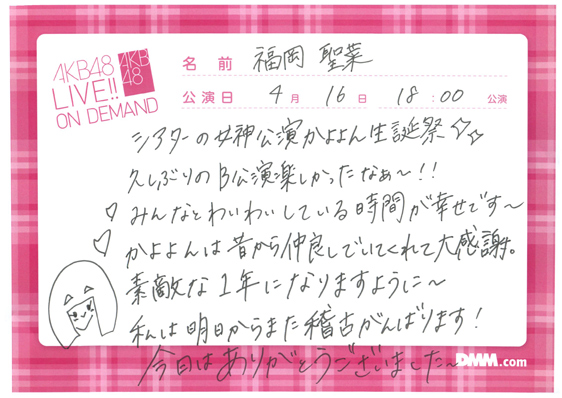 AKB48
LIVE!!
ON DEMAND
AKB
48
名前 福岡 聖菜
公演日 4月 16日 18:00 公演
シアターの女神公演かよよん生誕祭☆☆
久しぶりのB公演楽しかったなぁ〜!!
♡みんなとわいわいしている時間が幸せです〜
♡かよよんは昔から仲良しでいてくれて大感謝。
素敵な1年になりますように〜
私は明日からまた稽古がんばります!
今日はありがとうございました〜
DMM.com